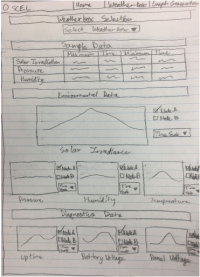 SEL Home Weatherbox Graph Generation
Weatherbox Selection
Select Weatherbox
Sample Data
Maximum Time Minimum Time
Solar Irradiation
Pressure
Humidity
Environmental Data
Node A
Node B
Time Scale
Solar Irradiance
Node A
Node B
Node A
Node B
Node A
Node B
Pressure Humidity Temperature
Diagnostics Data
Node A
Node B
Node A
Node B
Node A
Node B
Uptime Battery Voltage Panel Voltage